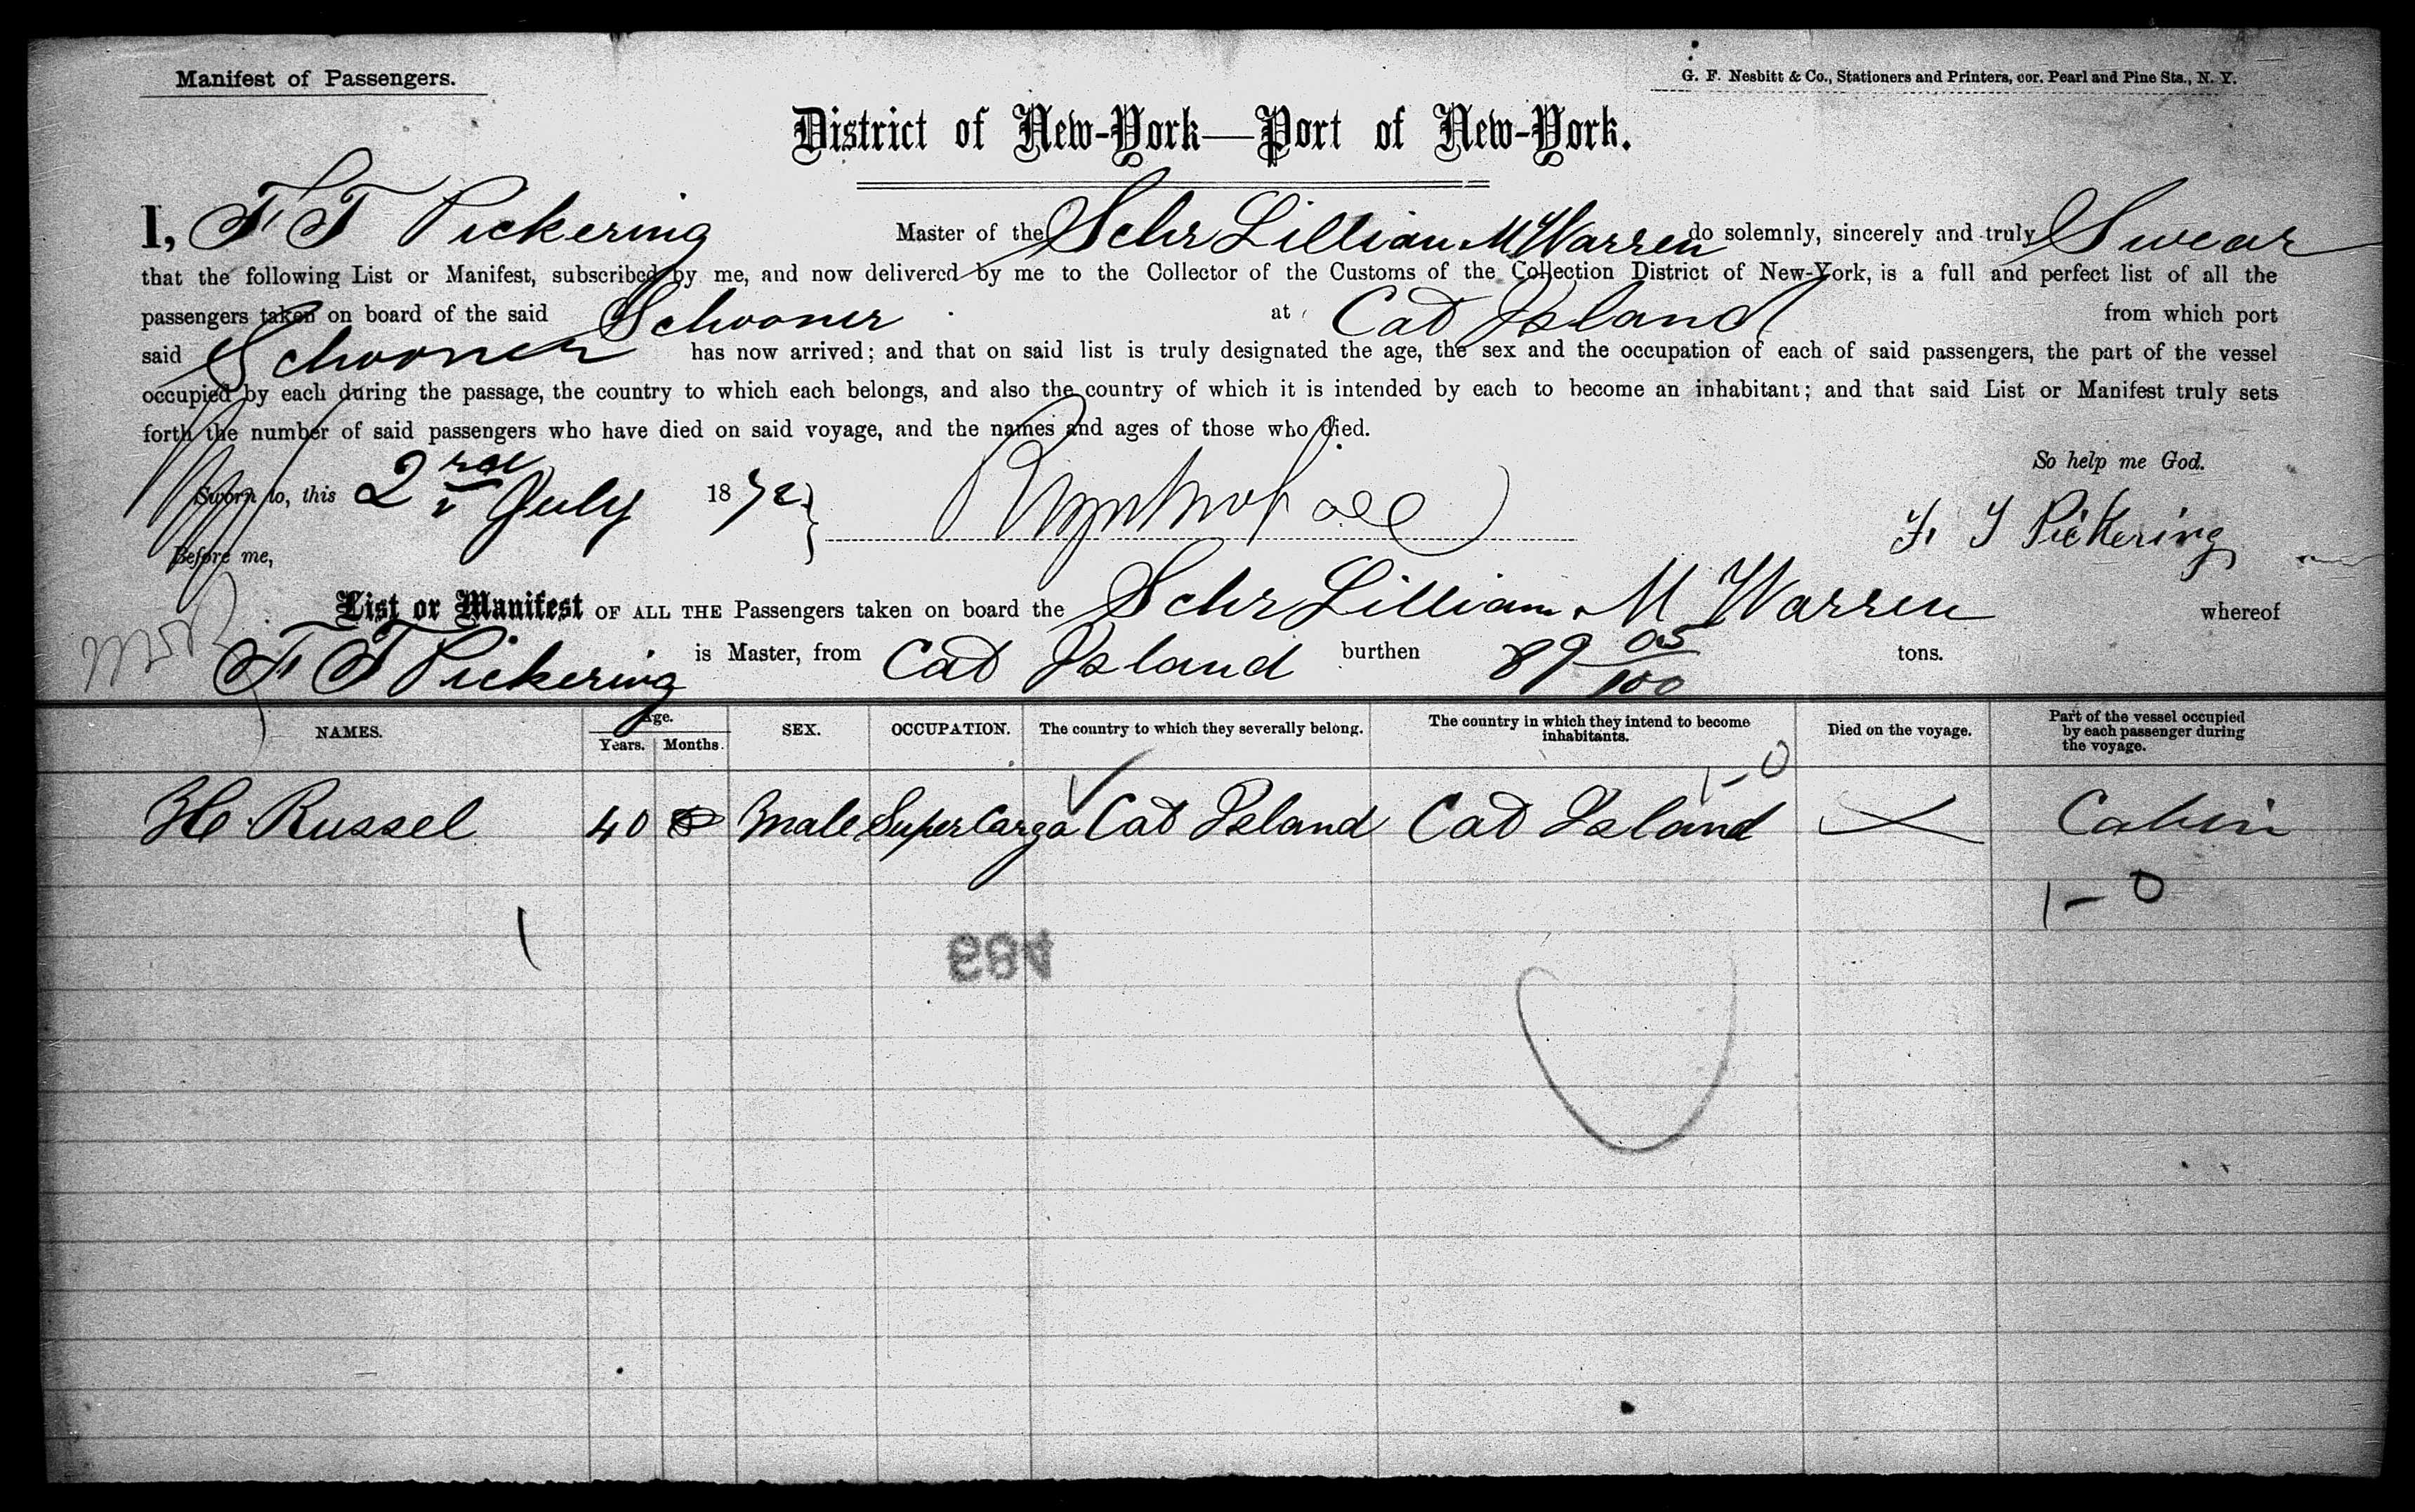 Manifest of Passengers.
G. F. Nesbitt & Co., Stationers and Printers, cor. Pearl and Pine Sts., N. Y.
District of New-York—Port of New-York.
I, F T Pickering Master of the Schr Lillian M Warren do solemnly, sincerely and truly Swear
that the following List or Manifest, subscribed by me, and now delivered by me to the Collector of the Customs of the Collection District of New-York, is a full and perfect list of all the
passengers taken on board of the said Schooner at Cat Island from which port
said Schooner has now arrived; and that on said list is truly designated the age, the sex and the occupation of each of said passengers, the part of the vessel
occupied by each during the passage, the country to which each belongs, and also the country of which it is intended by each to become an inhabitant; and that said List or Manifest truly sets
forth the number of said passengers who have died on said voyage, and the names and ages of those who died.
So help me God.
Sworn to, this 2rd July 1872
F. T Pickering
Before me,
List or Manifest OF ALL THE Passengers taken on board the Schr Lillian M Warren whereof
F T Pickering is Master, from Cat Island burthen 89 05/100 tons.
NAMES. Age. Years. Months. SEX. OCCUPATION. The country to which they severally belong. The country in which they intend to become inhabitants. Died on the voyage. Part of the vessel occupied by each passenger during the voyage.
1-0
H Russel 40 Male SuperCargo Cat Island Cat Island Cabin
1-0
1